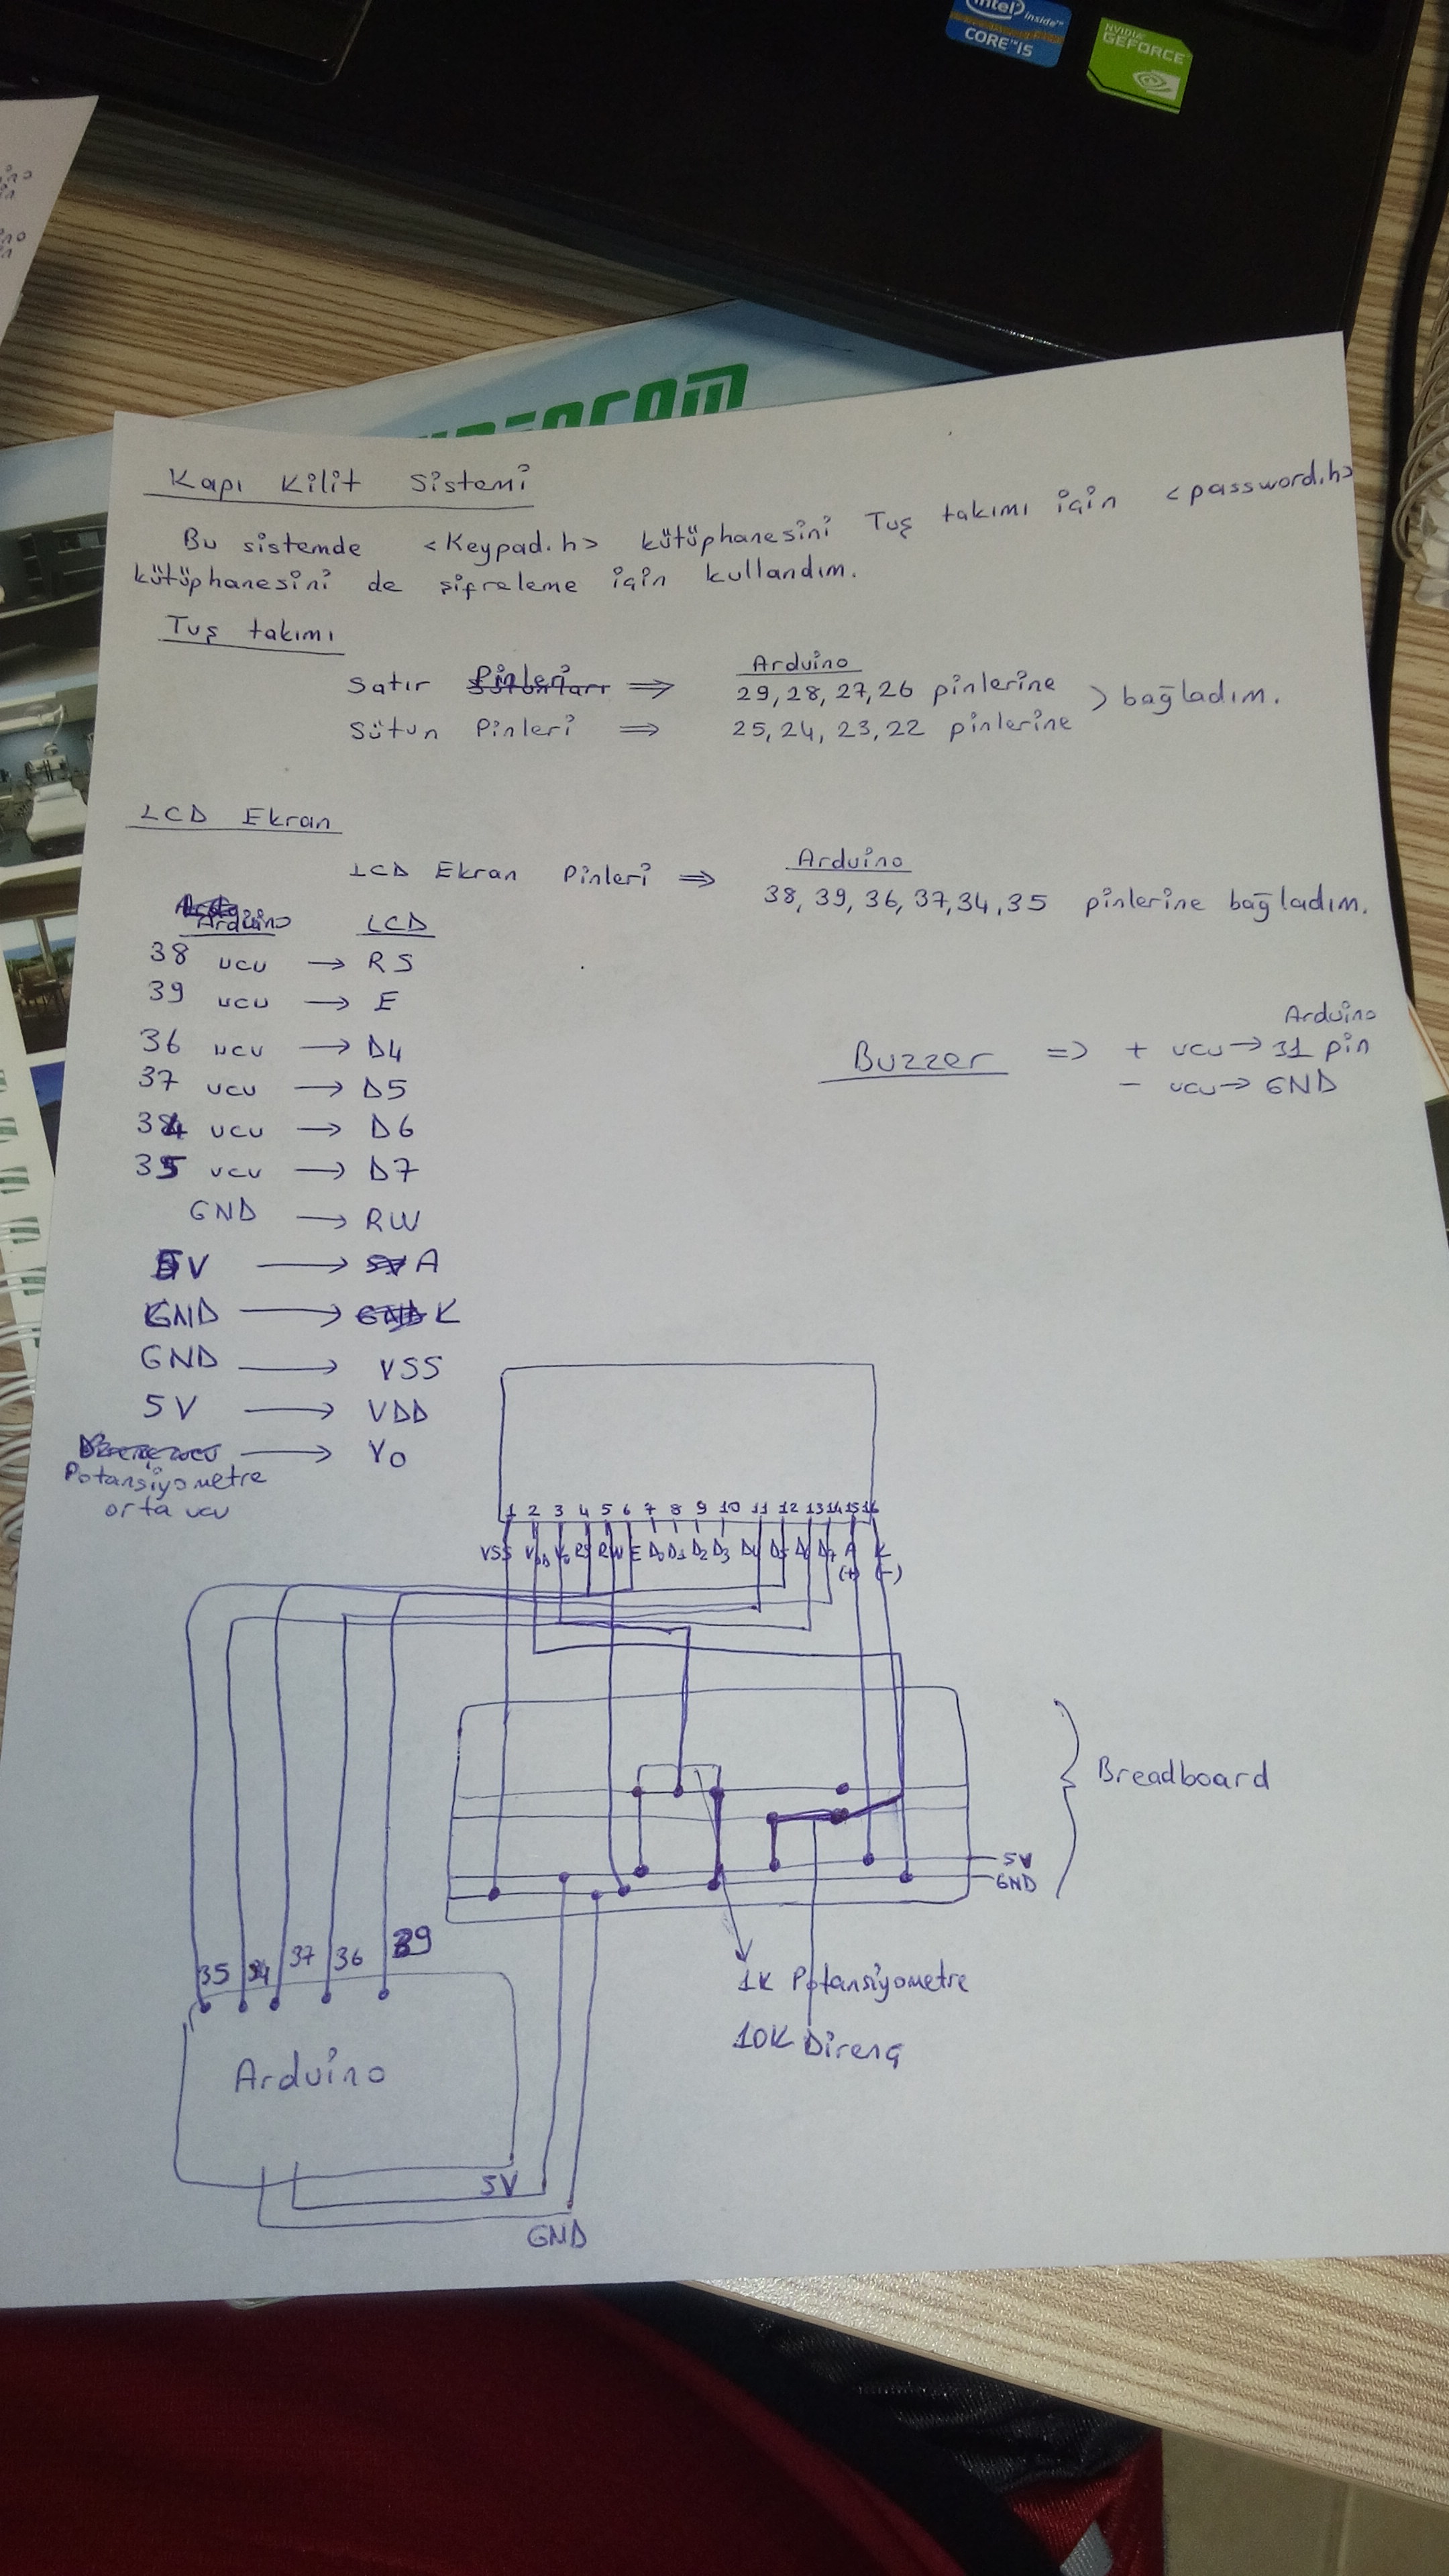 intel inside™
CORE™ i5
NVIDIA
GEFORCE
Kapı Kilit Sistemi
Bu sistemde <Keypad.h> kütüphanesini Tuş takımı için <password.h>
kütüphanesini de şifreleme için kullandım.
Tuş takımı
Arduino
Satır Pinleri ⇒ 29, 28, 27, 26 pinlerine
} bağladım.
Sütun Pinleri ⇒ 25, 24, 23, 22 pinlerine
LCD Ekran
Arduino
LCD Ekran Pinleri ⇒ 38, 39, 36, 37, 34, 35 pinlerine bağladım.
Arduino LCD
38 ucu → RS
39 ucu → E
36 ucu → D4
37 ucu → D5
34 ucu → D6
35 ucu → D7
GND → RW
5V → A
GND → K
GND → VSS
5V → VDD
Potansiyometre orta ucu → Vo
Arduino
Buzzer => + ucu → 31 pin
- ucu → GND
1 2 3 4 5 6 7 8 9 10 11 12 13 14 15 16
VSS VDD Vo RS RW E D0 D1 D2 D3 D4 D5 D6 D7 A K
(+) (-)
Breadboard
5V
GND
35 34 37 36 39
1K Potansiyometre
10K Direnç
Arduino
5V
GND